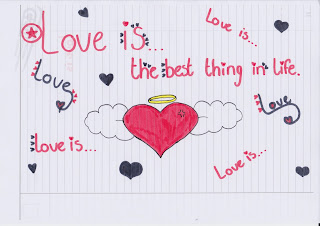 Love is...
Love is...
the best thing in life.
Love
Love
Love is...
Love is...